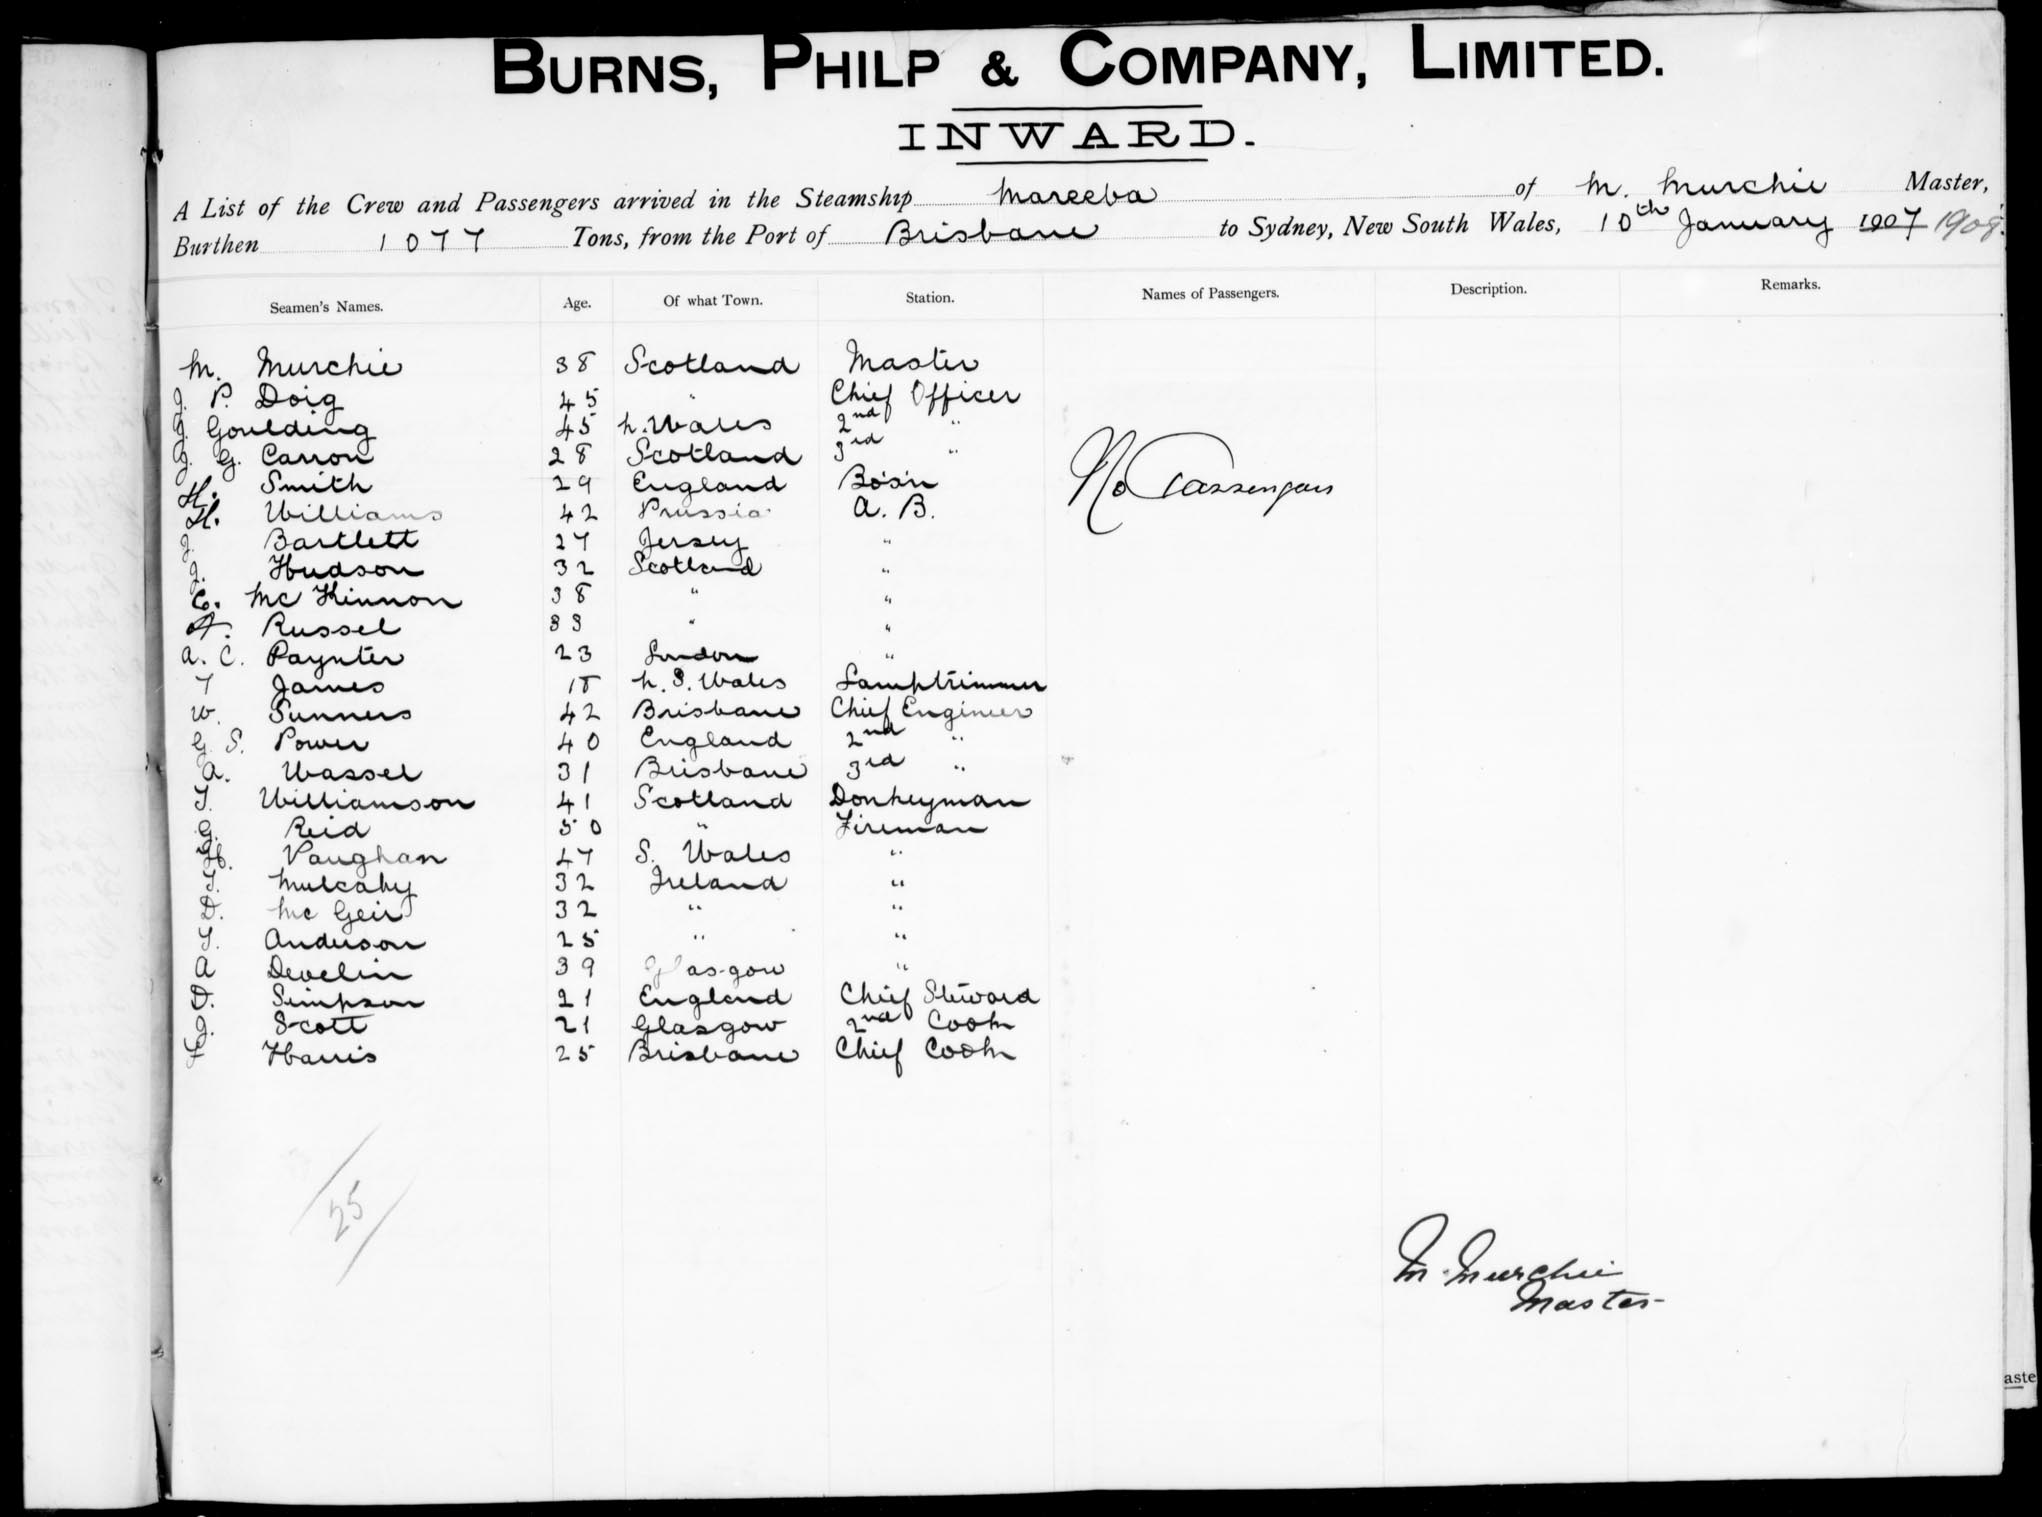 BURNS, PHILP & COMPANY, LIMITED.
INWARD.
A List of the Crew and Passengers arrived in the Steamship Mareeba of M. Murchie Master,
Burthen 1077 Tons, from the Port of Brisbane to Sydney, New South Wales, 10th January 1907 1908.
Seamen's Names. Age. Of what Town. Station. Names of Passengers. Description. Remarks.
M. Murchie 38 Scotland Master
J. P. Doig 45 " Chief Officer
J. Goulding 45 N. Wales 2nd "
J. G. Carron 28 Scotland 3rd "
H. Smith 29 England Bo'sn
No Passengers
H. Williams 42 Prussia A. B.
J. Bartlett 27 Jersey "
J. Hudson 32 Scotland "
C. McKinnon 38 " "
A. Russel 33 " "
A. C. Paynter 23 London "
T James 18 N. S. Wales Lamptrimmer
W. Sunners 42 Brisbane Chief Engineer
G. S. Power 40 England 2nd "
A. Wassel 31 Brisbane 3rd "
T. Williamson 41 Scotland Donkeyman
G. Reid 50 " Fireman
H. Vaughan 47 S. Wales "
T. Mulcahy 32 Ireland "
D. McGeir 32 " "
T. Anderson 25 " "
A Develin 39 Glasgow "
D. Simpson 21 England Chief Steward
J. Scott 21 Glasgow 2nd Cook
F Harris 25 Brisbane Chief Cook
25
M. Murchie
Master
aste